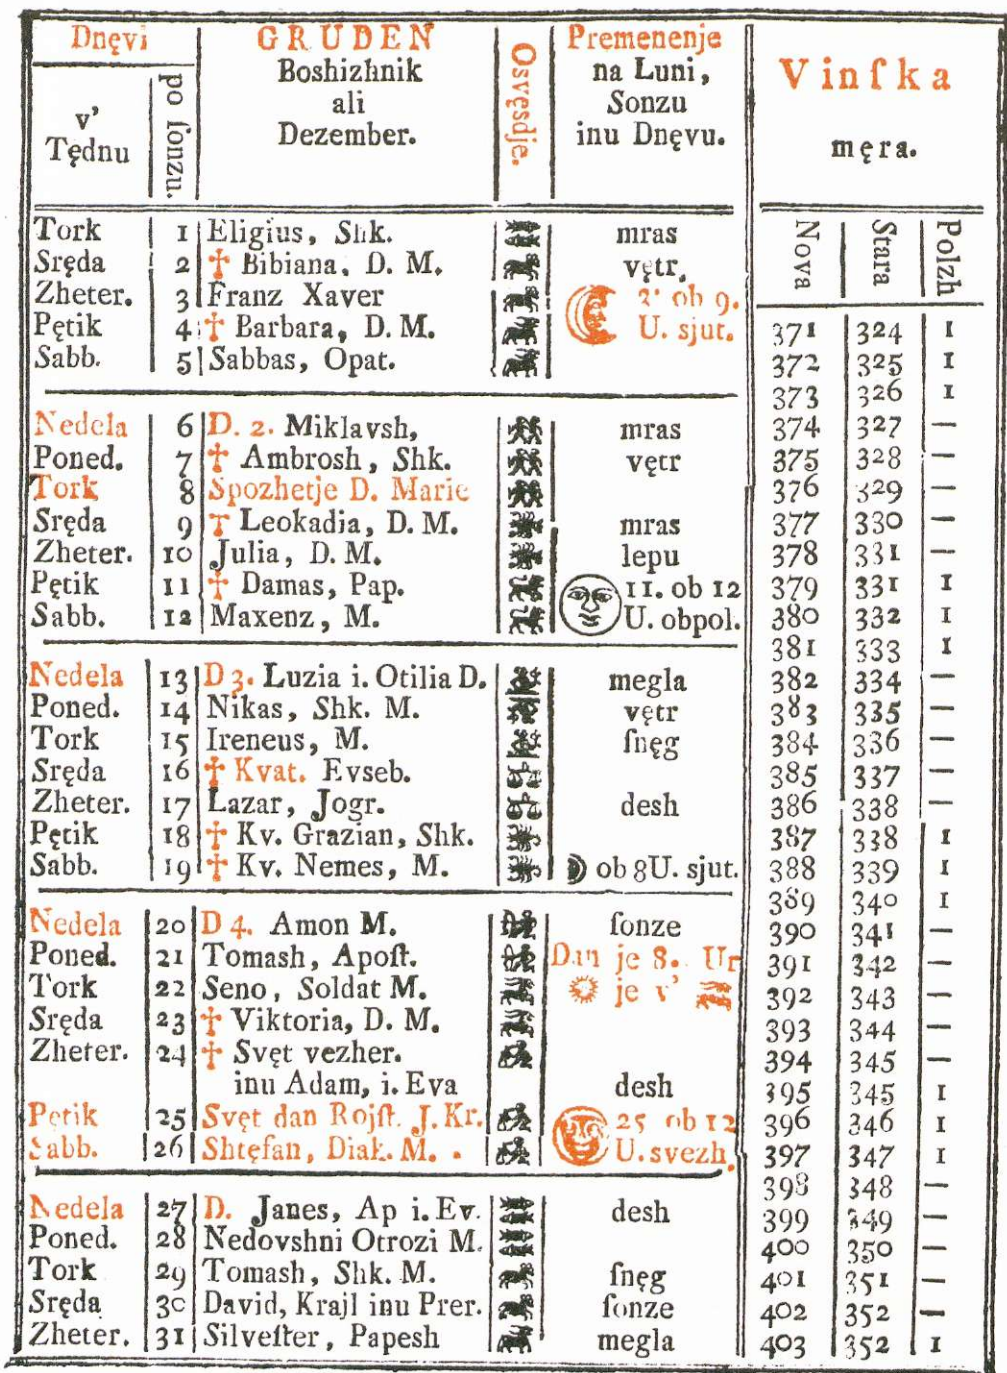 Dnęvi
v'
Tędnu
po ſonzu.
GRUDEN
Boshizhnik
ali
Dezember.
Osvęsdje.
Premenenje
na Luni,
Sonzu
inu Dnęvu.
Vinſka
męra.
Nova Stara Polzh
Tork 1 Eligius, Shk. mras
Sręda 2 † Bibiana, D. M. vętr,
Zheter. 3 Franz Xaver 3. ob 9.
Pętik 4 † Barbara, D. M. U. sjut.
Sabb. 5 Sabbas, Opat.
Nedela 6 D. 2. Miklavsh, mras
Poned. 7 † Ambrosh, Shk. vętr
Tork 8 Spozhetje D. Marie
Sręda 9 † Leokadia, D. M. mras
Zheter. 10 Julia, D. M. lepu
Pętik 11 † Damas, Pap. 11. ob 12
Sabb. 12 Maxenz, M. U. obpol.
Nedela 13 D 3. Luzia i. Otilia D. megla
Poned. 14 Nikas, Shk. M. vętr
Tork 15 Ireneus, M. ſnęg
Sręda 16 † Kvat. Evseb.
Zheter. 17 Lazar, Jogr. desh
Pętik 18 † Kv. Grazian, Shk.
Sabb. 19 † Kv. Nemes, M. ob 8U. sjut.
Nedela 20 D 4. Amon M. ſonze
Poned. 21 Tomash, Apoſt. Dan je 8. Ur
Tork 22 Seno, Soldat M. je v'
Sręda 23 † Viktoria, D. M.
Zheter. 24 † Svęt vezher.
inu Adam, i. Eva desh
Pętik 25 Svęt dan Rojſt. J. Kr. 25 ob 12
Sabb. 26 Shtęfan, Diak. M. . U. svezh.
Nedela 27 D. Janes, Ap i. Ev. desh
Poned. 28 Nedovshni Otrozi M.
Tork 29 Tomash, Shk. M. ſnęg
Sręda 30 David, Krajl inu Prer. ſonze
Zheter. 31 Silveſter, Papesh megla
371 324 1
372 325 1
373 326 1
374 327 —
375 328 —
376 329 —
377 330 —
378 331 —
379 331 1
380 332 1
381 333 1
382 334 —
383 335 —
384 336 —
385 337 —
386 338 —
387 338 1
388 339 1
389 340 1
390 341 —
391 342 —
392 343 —
393 344 —
394 345 —
395 345 1
396 346 1
397 347 1
398 348 —
399 349 —
400 350 —
401 351 —
402 352 —
403 352 1